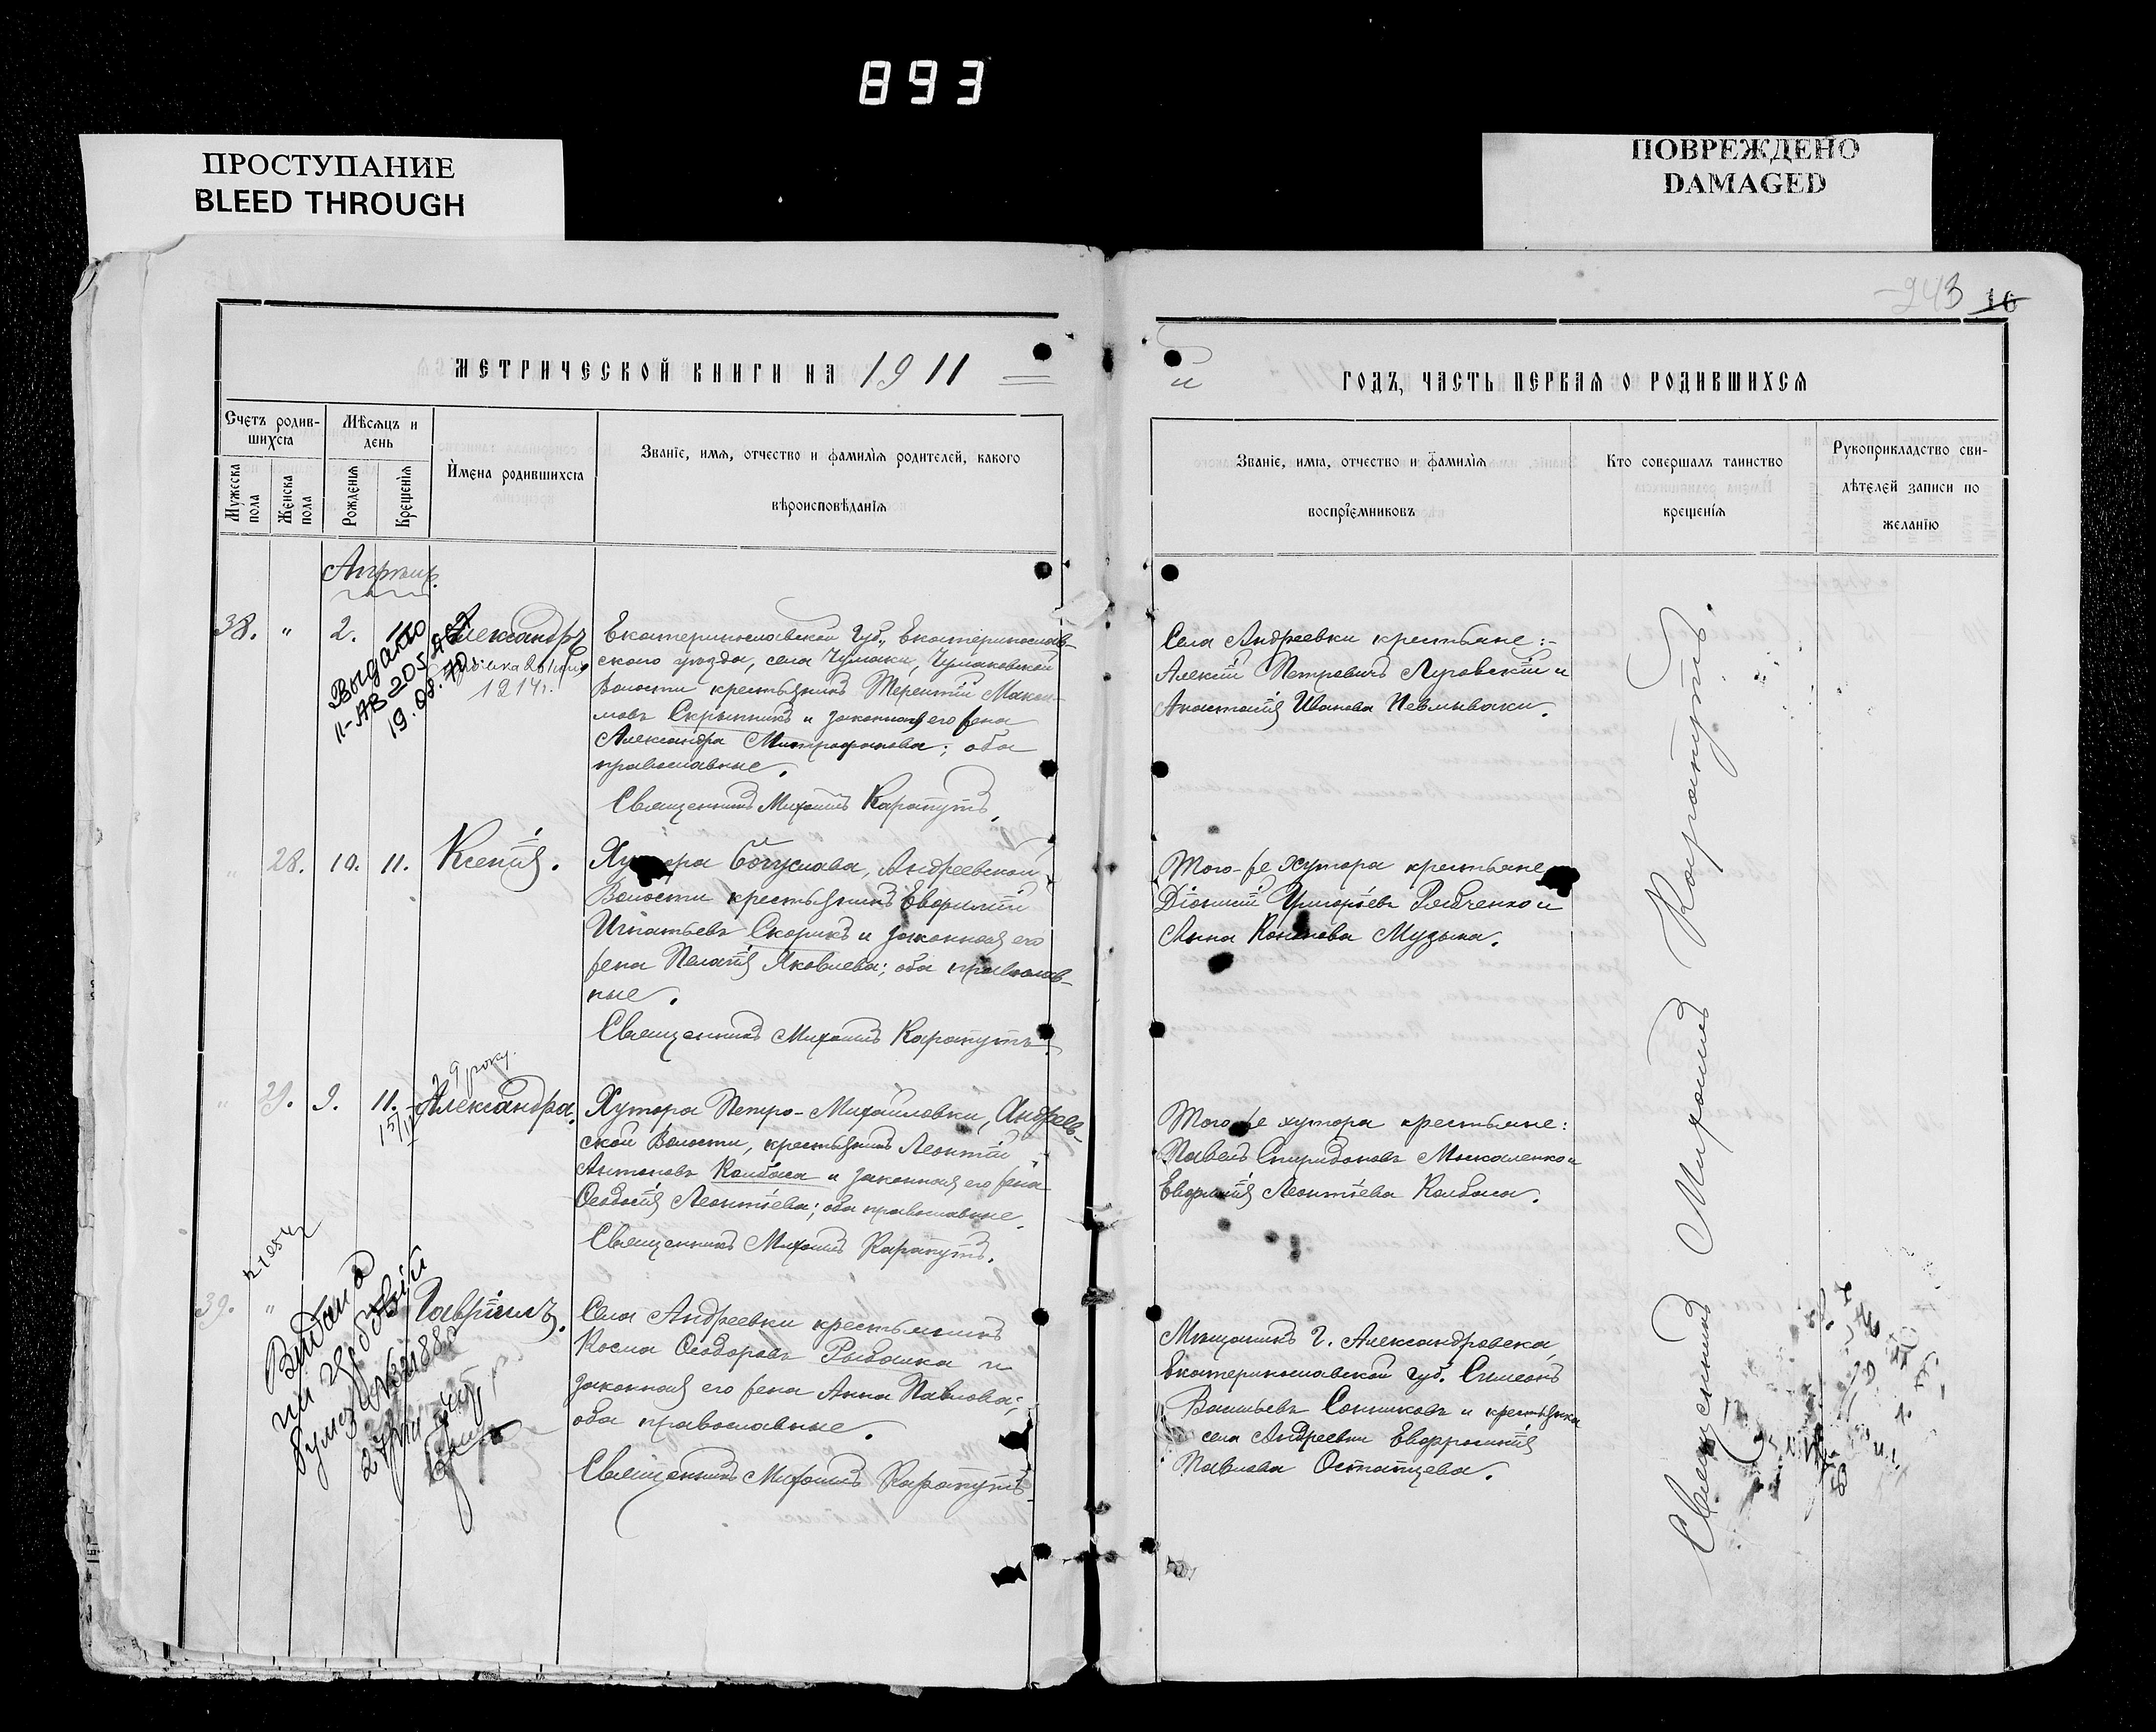 893
ПРОСТУПАНИЕ
BLEED THROUGH
ПОВРЕЖДЕНО
DAMAGED
243 16
МЕТРИЧЕСКОЙ КНИГИ НА 1911
Счетъ родив-
шихся
Мѣсяцъ и
день
Мужеска
пола
Женска
пола
Рожденія
Крещенія
Имена родившихся
Званіе, имя, отчество и фамилія родителей, какого
вѣроисповѣданія
Апрѣль.
38. " 2. Александръ
Выдано
II-АВ 205
19.08.70.
1914 г.
Екатеринославской Губ., Екатеринослав-
скаго уѣзда, села Чумаки, Чумаковской
Волости крестьянинъ Терентій Макси-
мовъ Скрыпникъ и законная его жена
Александра Митрофанова; оба
православные.
Священникъ Михаилъ Карапутъ.
" 28. 10. 11. Ксенія.
Хутора Богуслава, Андреевской
Волости крестьянинъ Евфимій
Игнатьевъ Скорикъ и законная его
жена Пелагія Яковлева; оба православ-
ные.
Священникъ Михаилъ Карапутъ.
" 29. 9. 11. Александра.
Хутора Петро-Михайловки, Андреев-
ской Волости, крестьянинъ Леонтій
Антоновъ Колбаса и законная его жена
Ѳеодосія Леонтіева; оба православные.
Священникъ Михаилъ Карапутъ.
39. " Гавріилъ.
Видана
Села Андреевки крестьянинъ
Косма Ѳеодоровъ Рыбалка и
законная его жена Анна Павлова;
оба православные.
Священникъ Михаилъ Карапутъ.
ГОДЪ, ЧАСТЬ ПЕРВАЯ О РОДИВШИХСЯ
Званіе, имя, отчество и фамилія
воспріемниковъ
Кто совершалъ таинство
крещенія
Рукоприкладство сви-
дѣтелей записи по
желанію
Села Андреевки крестьяне:-
Алексій Петровичъ Луговскій и
Анастасія Иванова Невмывака.
Того-же Хутора крестьяне
Діонисій Григорьевъ Рябченко и
Анна Кононова Музыка.
Того же хутора крестьяне:
Павелъ Спиридоновъ Москаленко и
Евфимія Леонтіева Колбаса.
Мѣщанинъ г. Александровска,
Екатеринославской губ. Симеонъ
Васильевъ Сонниковъ и крестьянка
села Андреевки Евфросинія
Павлова Остапцева.
Священникъ Михаилъ Карапутъ.